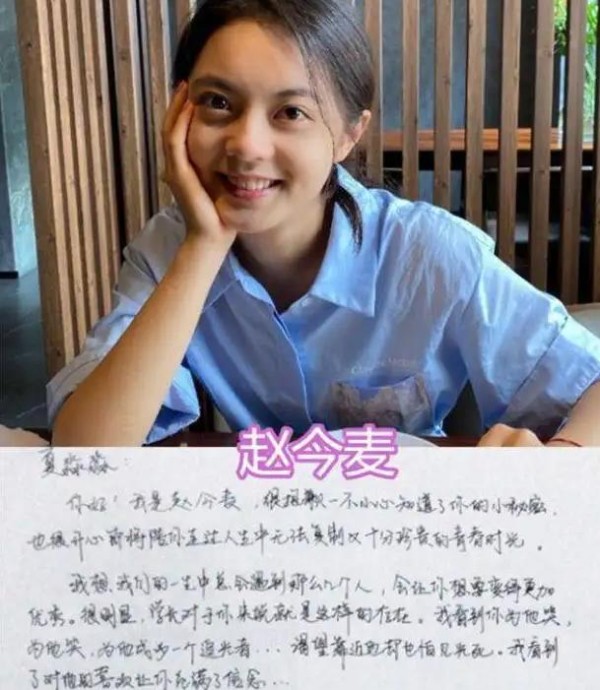 赵今麦
夏淼淼：
你好！我是赵今麦，很抱歉一不小心知道了你的小秘密，
也很开心即将陪你走过人生中无法复制又十分珍贵的青春时光。
我想，我们的一生中总会遇到那么几个人，会让你想要变得更加
优秀。很明显，学长对于你来说就是这样的存在。我看到你为他笑，
为他哭，为他成为一个追光者...渴望靠近却也怕见光死。我看到
了对他的喜欢让你充满了信念...